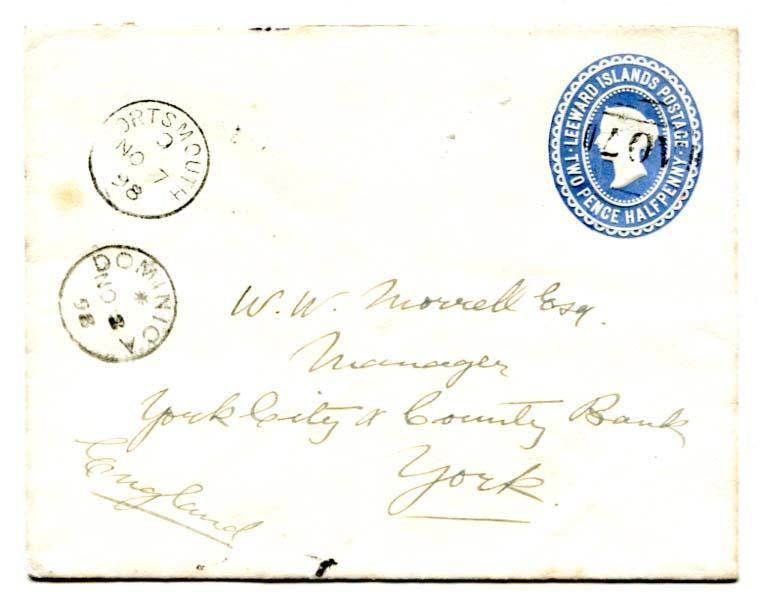 PORTSMOUTH
NO 7
98
LEEWARD ISLANDS POSTAGE
TWO PENCE HALFPENNY
DOMINICA
NO
98
W. W. Morrell Esq.
Manager
York City & County Bank
York.
England